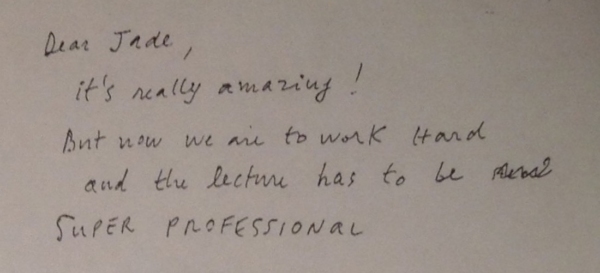 Dear Jade,
it's really amazing!
But now we are to work Hard
and the lecture has to be
SUPER PROFESSIONAL